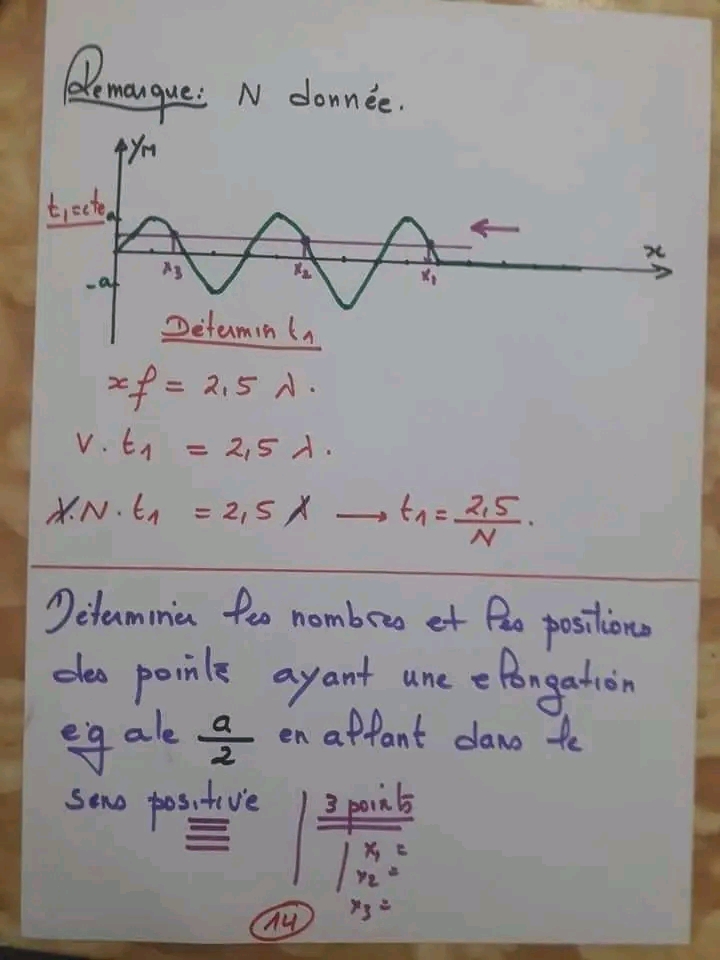 Remarque: N donnée.
yM
t1=cte
a
x
x3
x2
x1
-a
Détermin t1
xf = 2,5 λ.
V. t1 = 2,5 λ.
λ.N.t1 = 2,5 λ → t1 = 2,5/N.
Déterminer les nombres et les positions
des points ayant une elongation
egale a/2 en allant dans le
sens positive
3 points
x1 =
x2 =
x3 =
14